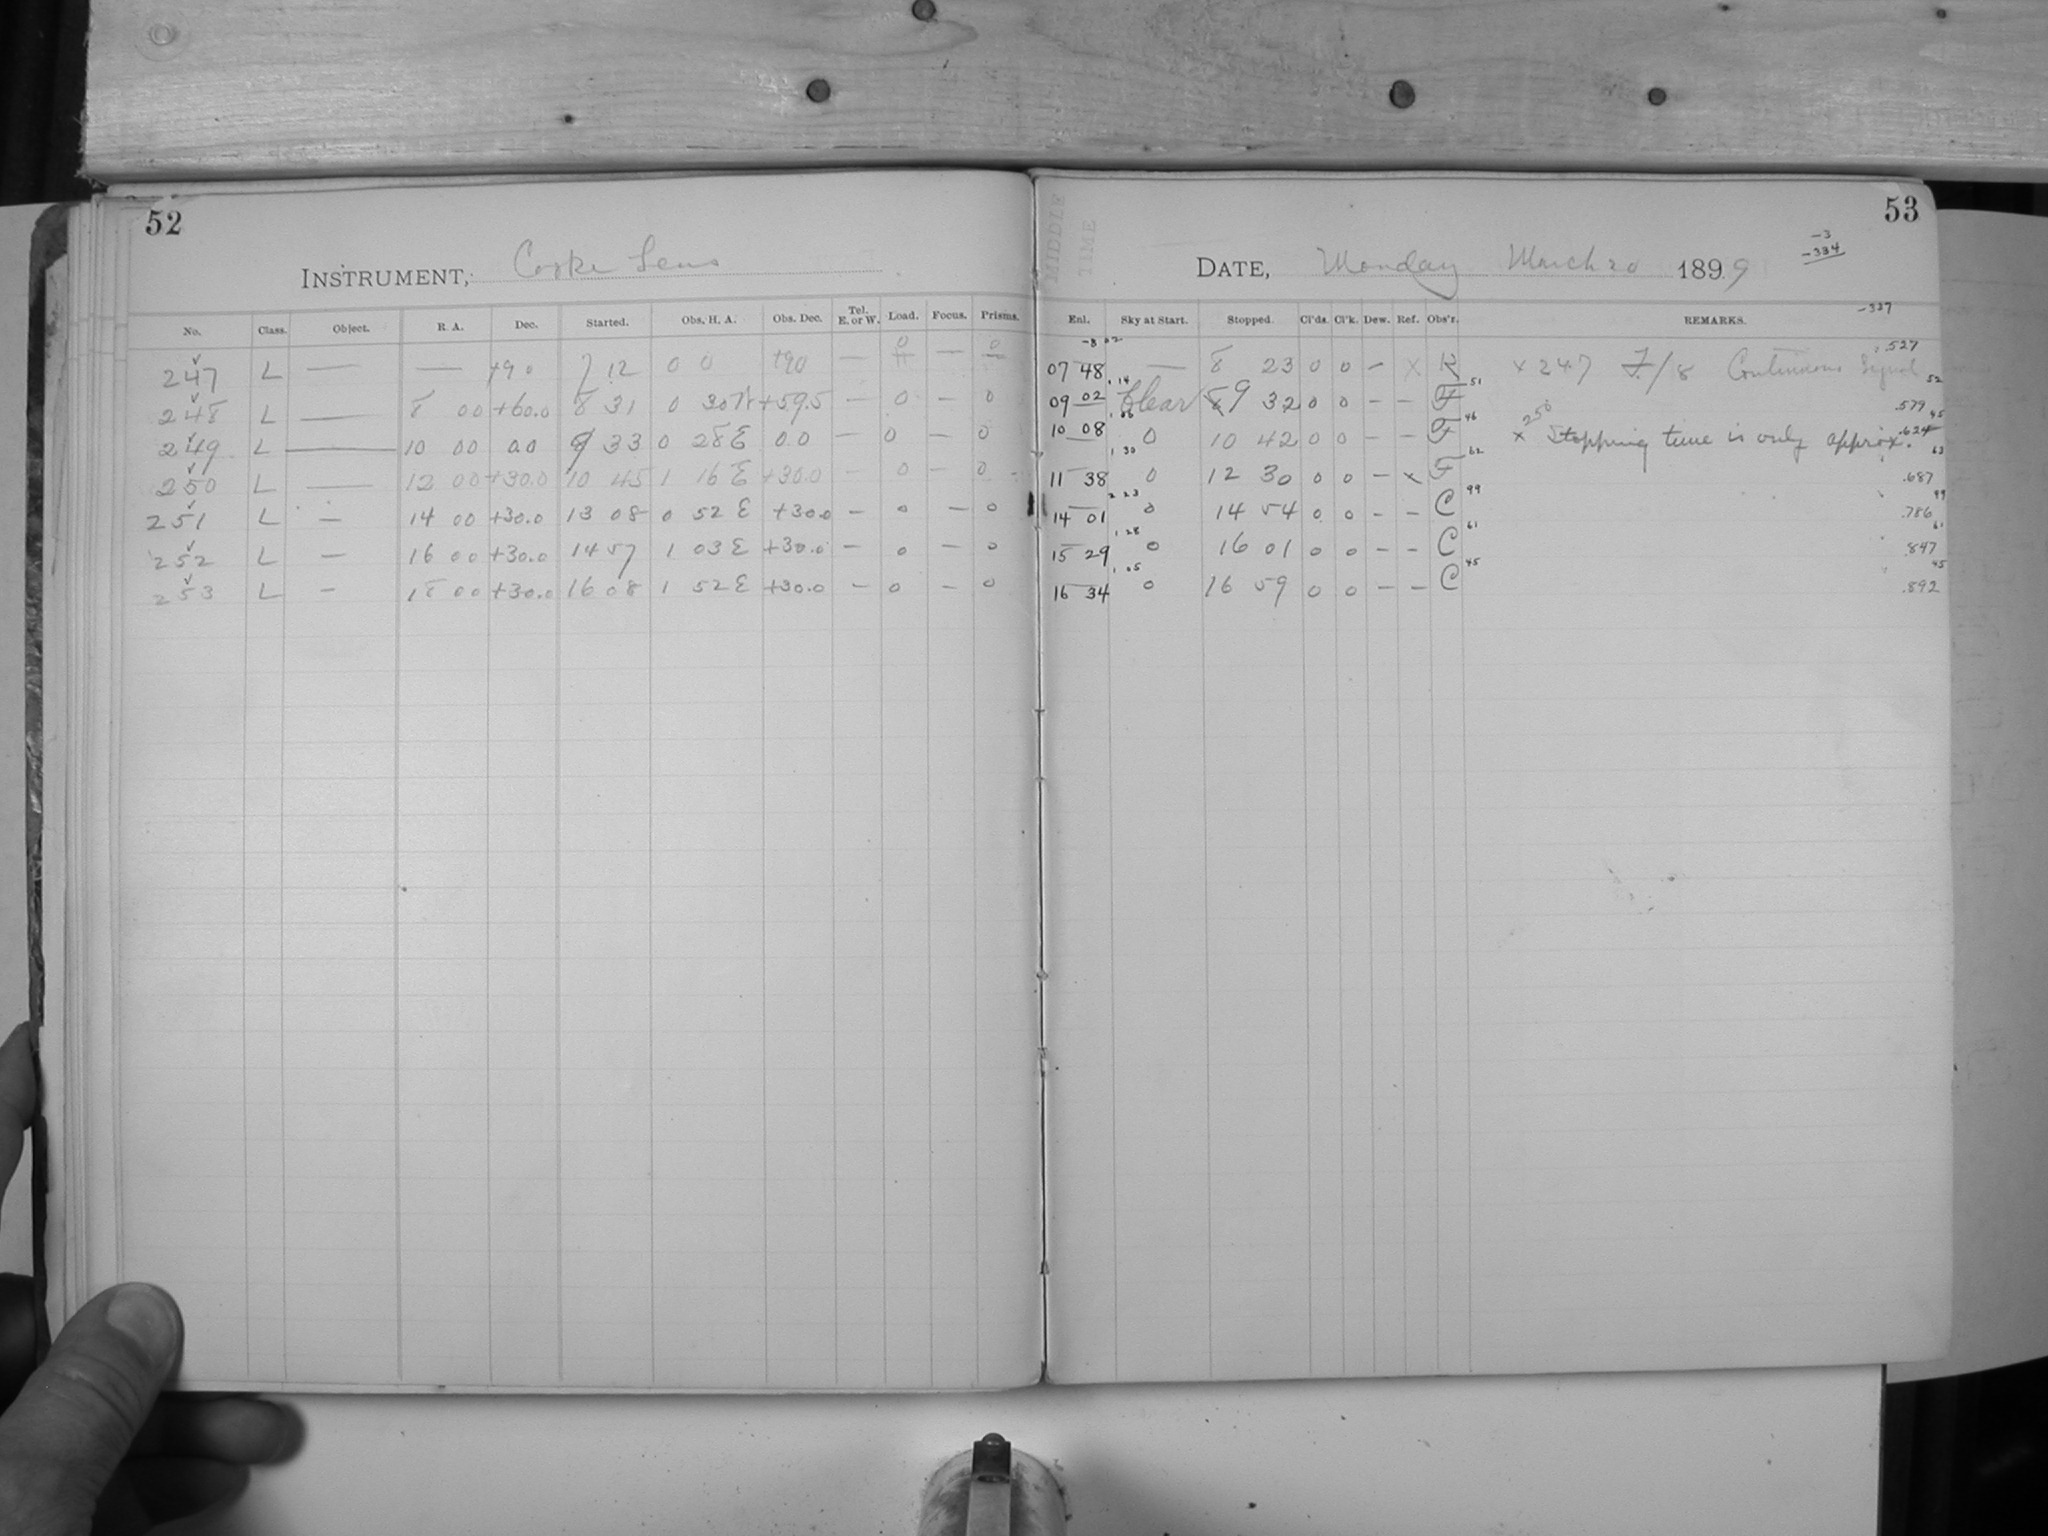 52
INSTRUMENT, Cooke Lens
No. Class. Object. R. A. Dec. Started. Obs. H. A. Obs. Dec. Tel. E. or W. Load. Focus. Prisms.
247 L — — +90 7 12 0 0 +90 — 0 — 0
248 L — 8 00 +60.0 8 31 0 30 W +59.5 — 0 — 0
249 L — 10 00 0.0 9 33 0 28 E 0.0 — 0 — 0
250 L — 12 00 +30.0 10 45 1 16 E +30.0 — 0 — 0
251 L — 14 00 +30.0 13 08 0 52 E +30.0 — 0 — 0
252 L — 16 00 +30.0 14 57 1 03 E +30.0 — 0 — 0
253 L — 18 00 +30.0 16 08 1 52 E +30.0 — 0 — 0
53
MIDDLE TIME
-3
-334
DATE, Monday March 20 1899
-337
Enl. Sky at Start. Stopped. Cl'ds. Cl'k. Dew. Ref. Obs'r. REMARKS.
-8 02
07 48 — 8 23 0 0 — X R x 247 F/8 Continuous Signal .527
1 14 51 52
09 02 Clear 9 32 0 0 — — F .579
1 06 46 x 250 45
10 08 0 10 42 0 0 — — F Stopping time is only approx. .624
1 30 62 63
11 38 0 12 30 0 0 — x F .687
2 23 99 99
14 01 0 14 54 0 0 — — C .786
1 28 61 61
15 29 0 16 01 0 0 — — C .847
1 05 45 45
16 34 0 16 59 0 0 — — C .892